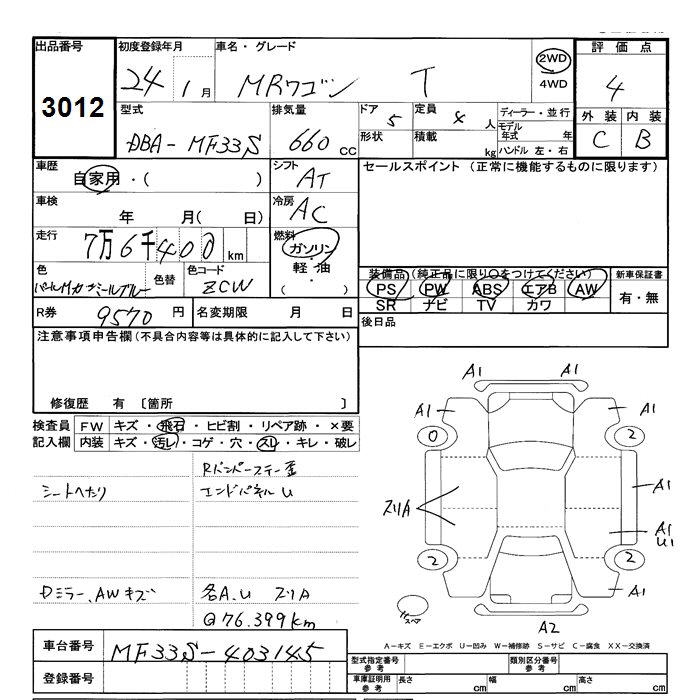 出品番号
3012
初度登録年月
24 1月
車名・グレード
MRワゴン T
2WD
4WD
評価点
4
外装 内装
C B
型式
DBA-MF33S
排気量
660 cc
ドア
5
形状
定員
4 人
積載
kg
ディーラー・並行
モデル年式 年
ハンドル 左・右
車歴
自家用・( )
シフト
AT
セールスポイント (正常に機能するものに限ります)
車検
年 月( 日)
冷房
AC
走行
7万6千400 km
燃料
ガソリン・
軽・油
( ・ )
色
色替
色コード
ZCW
装備品(純正品に限り○をつけてください)
PS PW ABS エアB AW
SR ナビ TV カワ
新車保証書
有・無
R券
9570 円
名変期限 月 日
後日品
注意事項申告欄(不具合内容等は具体的に記入して下さい)
修復歴 有 〔箇所 〕
検査員記入欄
FW キズ・飛石・ヒビ割・リペア跡・×要
内装 キズ・汚レ・コゲ・穴・スレ・キレ・破レ
Rバンパーステー歪
シートへたり
エンドパネルU
Dミラー、AWキズ
各A.U スリA
@76.399km
A1 A1
A1 A1
0 2
スリA
A1
A1
U1
2 2
A1
スペア
A2
A-キズ E-エクボ U-凹み W-補修跡 S-サビ C-腐食 XX-交換済
車台番号
MF33S-403145
登録番号
型式指定番号 参考
類別区分番号 参考
車庫証明用 参考
長さ cm
幅 cm
高さ cm